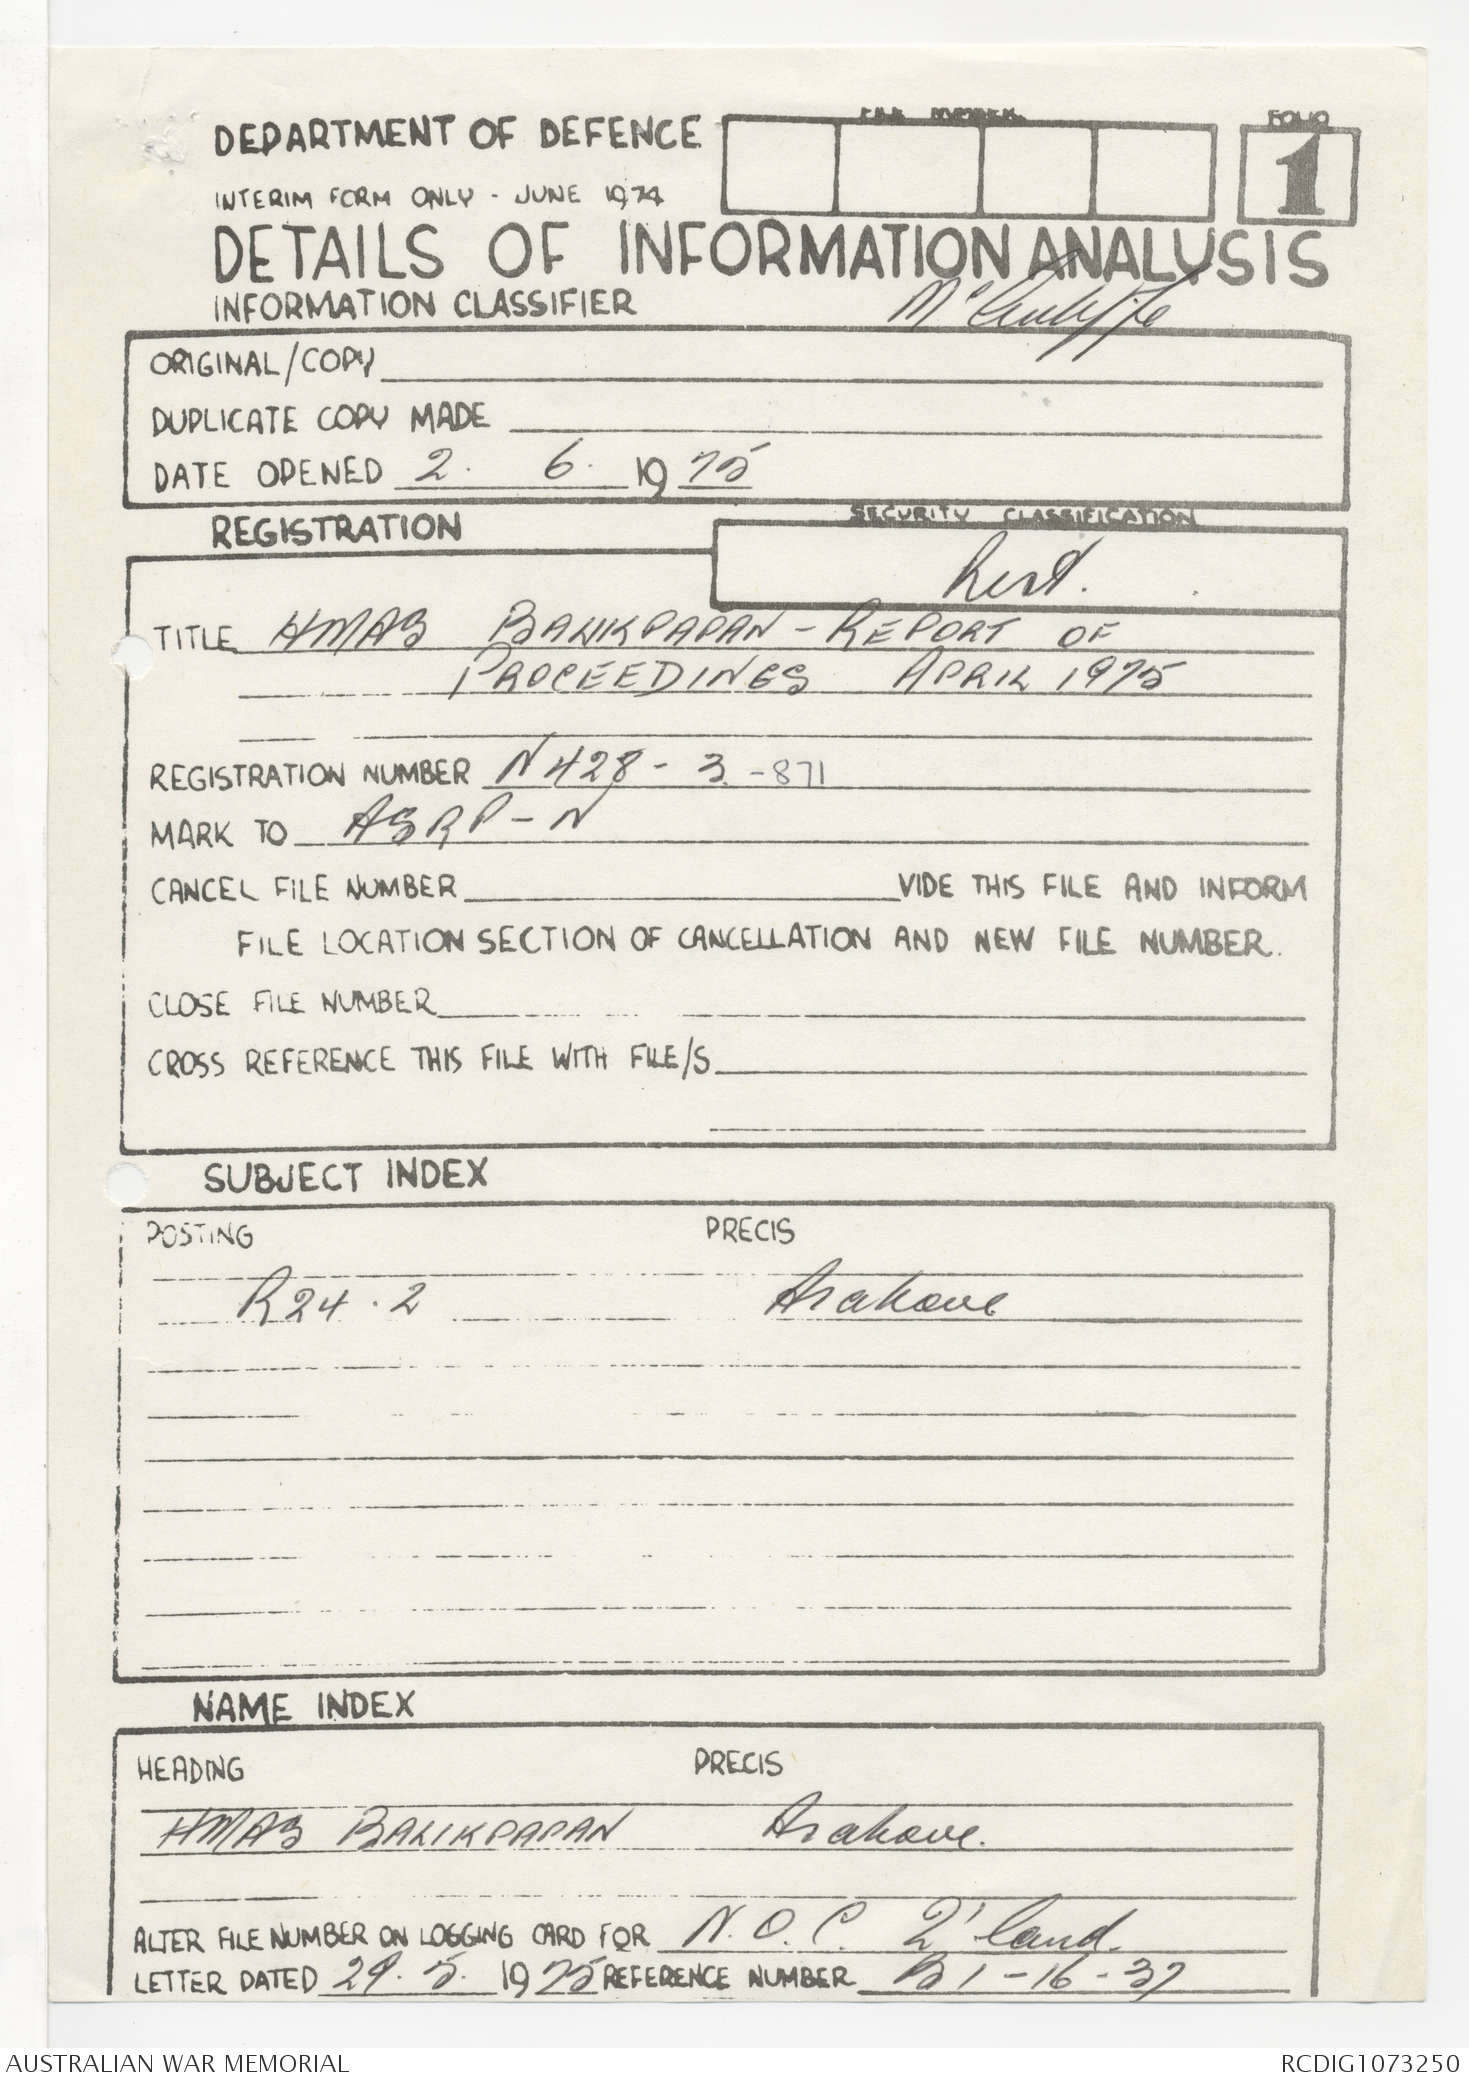 FILE NUMBER
FOLIO
DEPARTMENT OF DEFENCE
1
INTERIM FORM ONLY - JUNE 1974
DETAILS OF INFORMATION ANALYSIS
INFORMATION CLASSIFIER
ORIGINAL/COPY
DUPLICATE COPY MADE
DATE OPENED 2. 6. 1975
REGISTRATION
SECURITY CLASSIFICATION
Rest.
TITLE HMAS BALIKPAPAN - REPORT OF
PROCEEDINGS APRIL 1975
REGISTRATION NUMBER N428-3-871
MARK TO ASRP-N
CANCEL FILE NUMBER VIDE THIS FILE AND INFORM
FILE LOCATION SECTION OF CANCELLATION AND NEW FILE NUMBER.
CLOSE FILE NUMBER
CROSS REFERENCE THIS FILE WITH FILE/S
SUBJECT INDEX
POSTING PRECIS
R24.2 As above
NAME INDEX
HEADING PRECIS
HMAS BALIKPAPAN As above.
ALTER FILE NUMBER ON LOGGING CARD FOR N.O.C. Q'land.
LETTER DATED 29.5.1975 REFERENCE NUMBER B1-16-37
AUSTRALIAN WAR MEMORIAL
RCDIG1073250